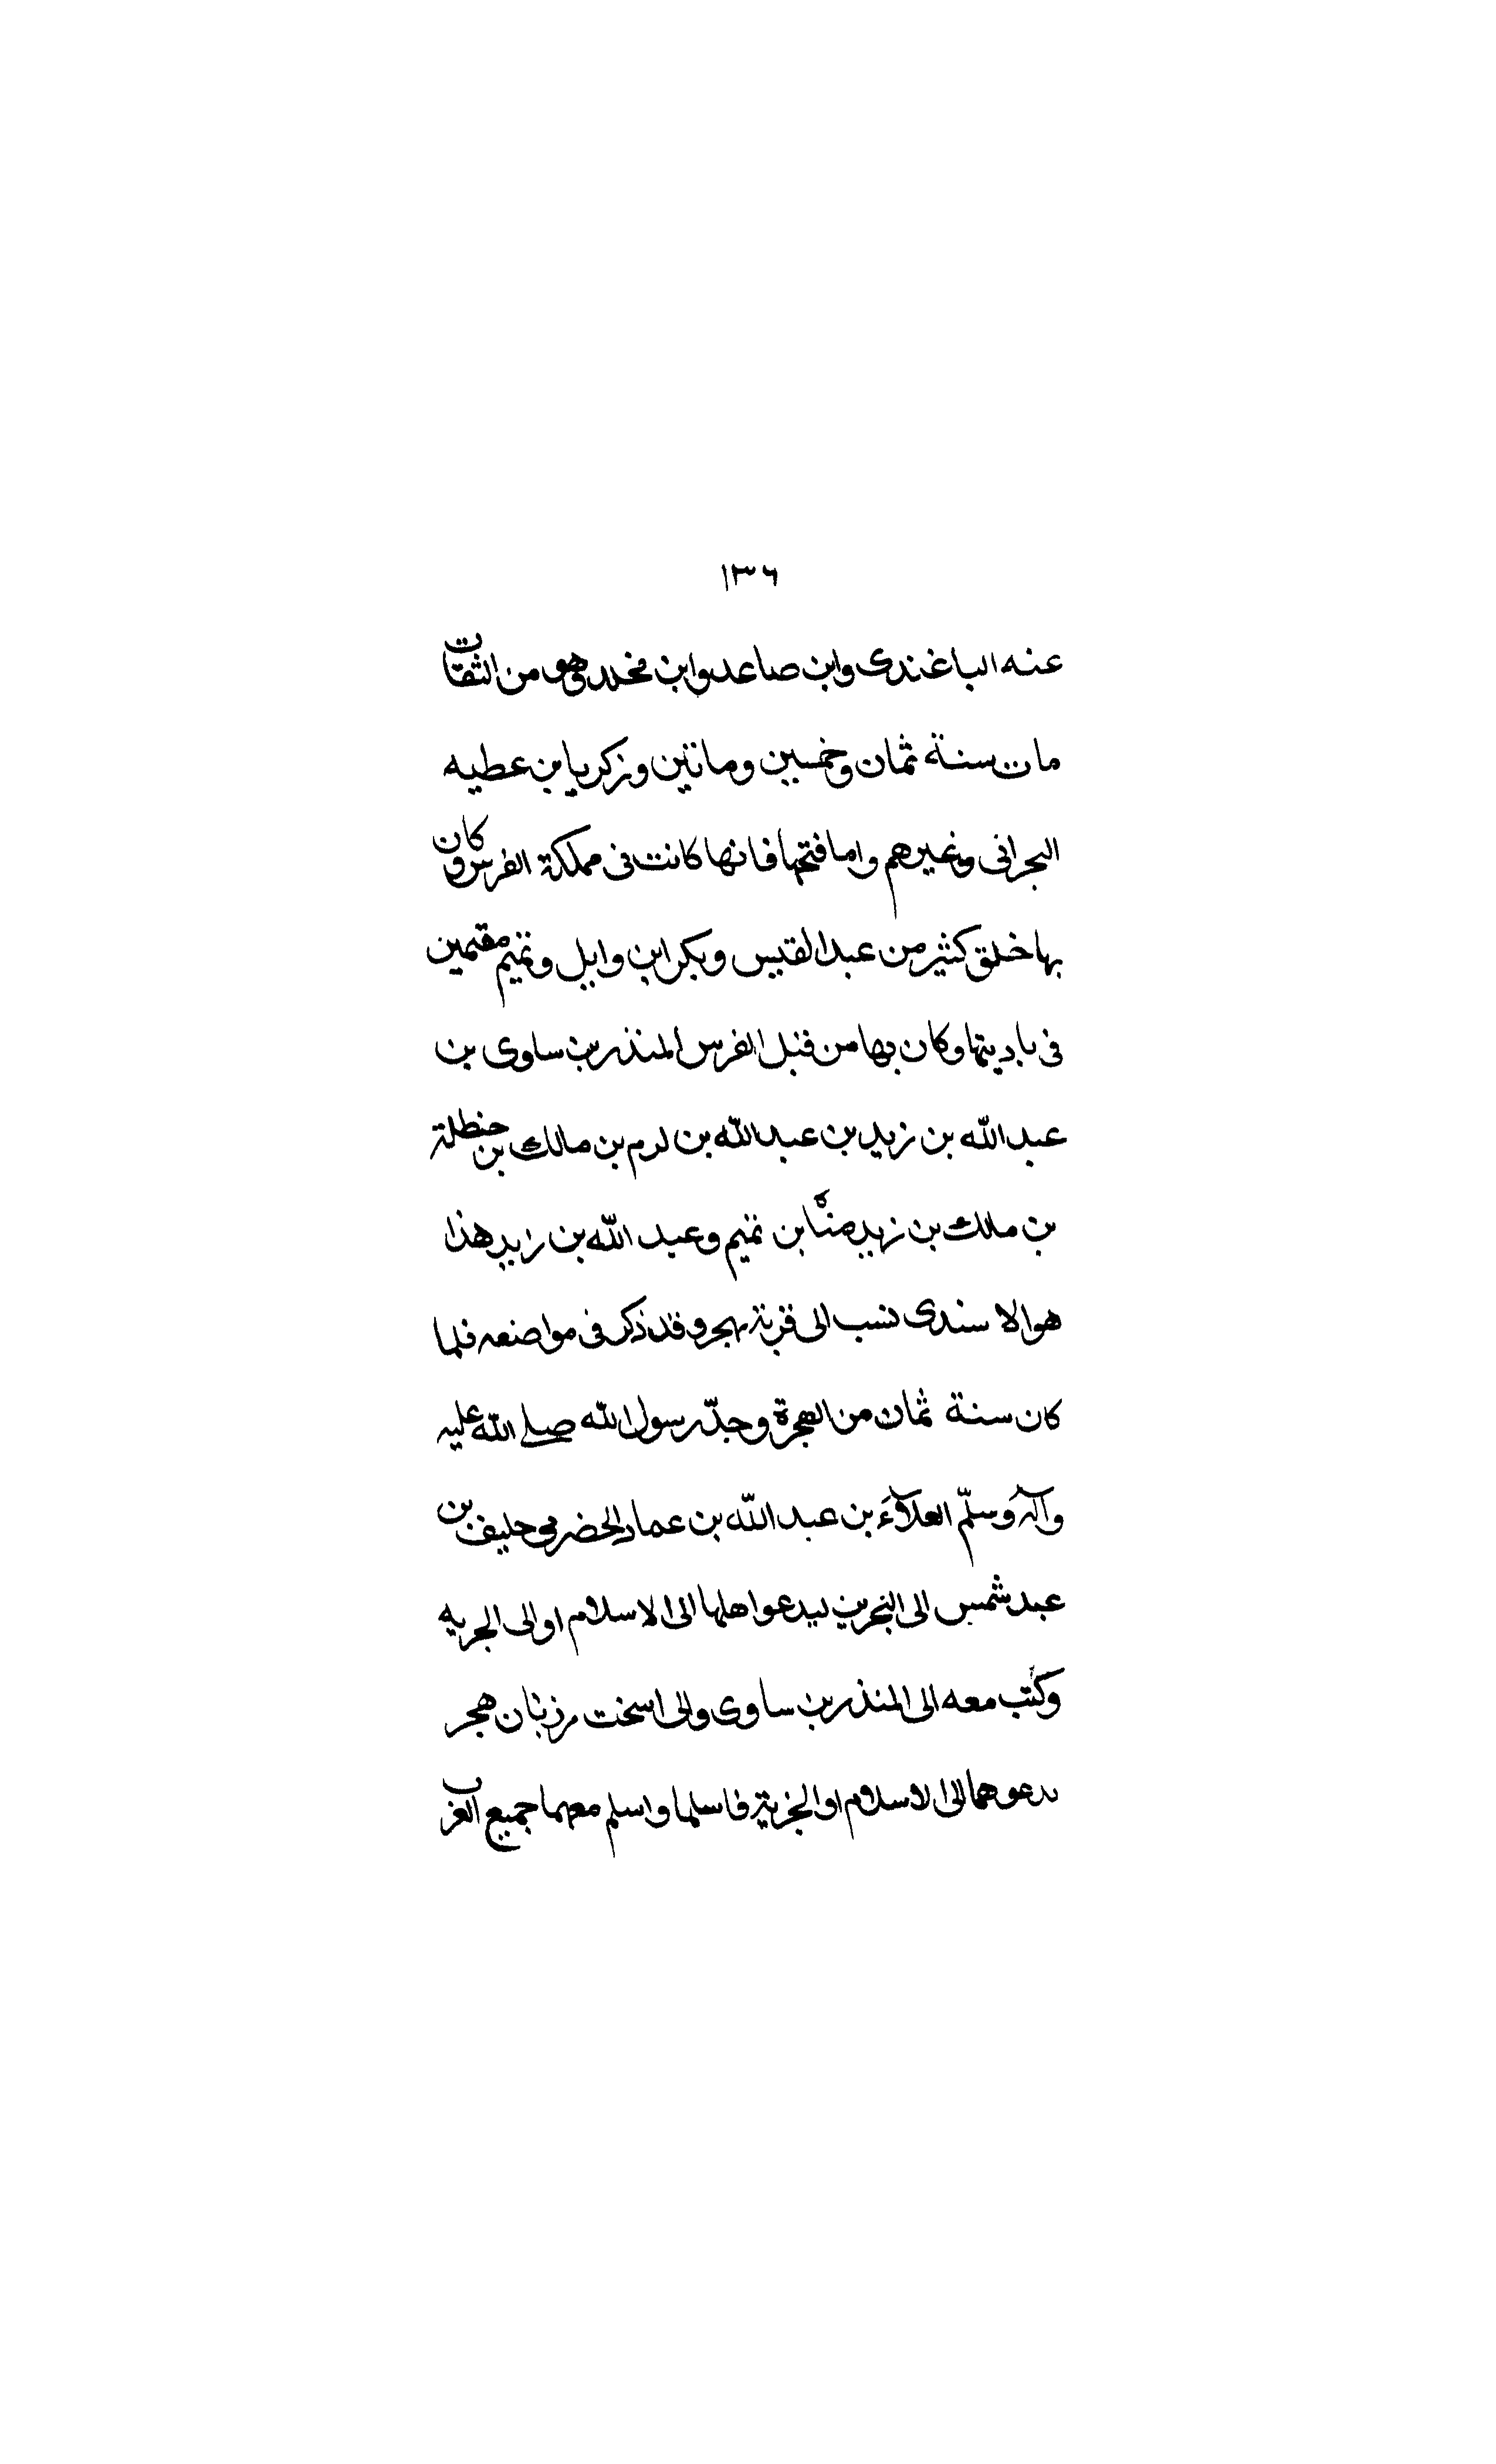 ١٣٦
عنه الباغندى وابن صاعد وابن مخلد وهو من الثقات
مات سنة ثمان وخمسين وماتين وزكريا بن عطيه
البحرانى وغيرهم واما فتحها فانها كانت فى مملكة الفرس وكان
بها خلق كثير من عبد القيس وبكر ابن وايل وتميم مقيمين
فى باديتها وكان بها من قبل الفرس المنذر بن ساوى بن
عبد الله بن زيد بن عبد الله بن لرم بن مالك بن حنظلة
بن مالك بن زيد مناة بن تميم وعبد الله بن زيد هذا
هو الاسندى نسب الى قرية بهجر وقد ذكر فى مواضعه فلما
كان سنة ثمان من الهجرة وجّه رسول الله صلى الله عليه
وآله وسلّم العلآء بن عبد الله بن عماد الحضرمى حليف بن
عبد شمس الى البحرين ليدعوا هلها الى الاسلام او الى الجريه
وكتب معه الى المنذر بن ساوى والى اسخت مرزبان هجر
يدعوهما الى الاسلام او الجزية فاسلما واسلم معهما جميع العرب